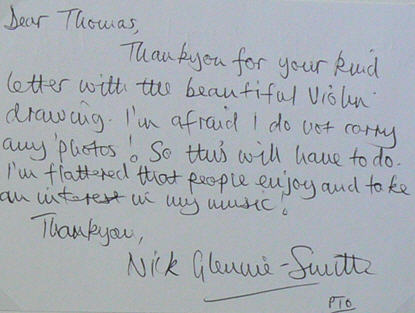 Dear Thomas,
Thankyou for your kind
letter with the beautiful Violin
drawing. I'm afraid I do not carry
any 'photos'! So this will have to do.
I'm flattered that people enjoy and take
an interest in my music!
Thankyou,
Nick Glennie-Smith
PTO